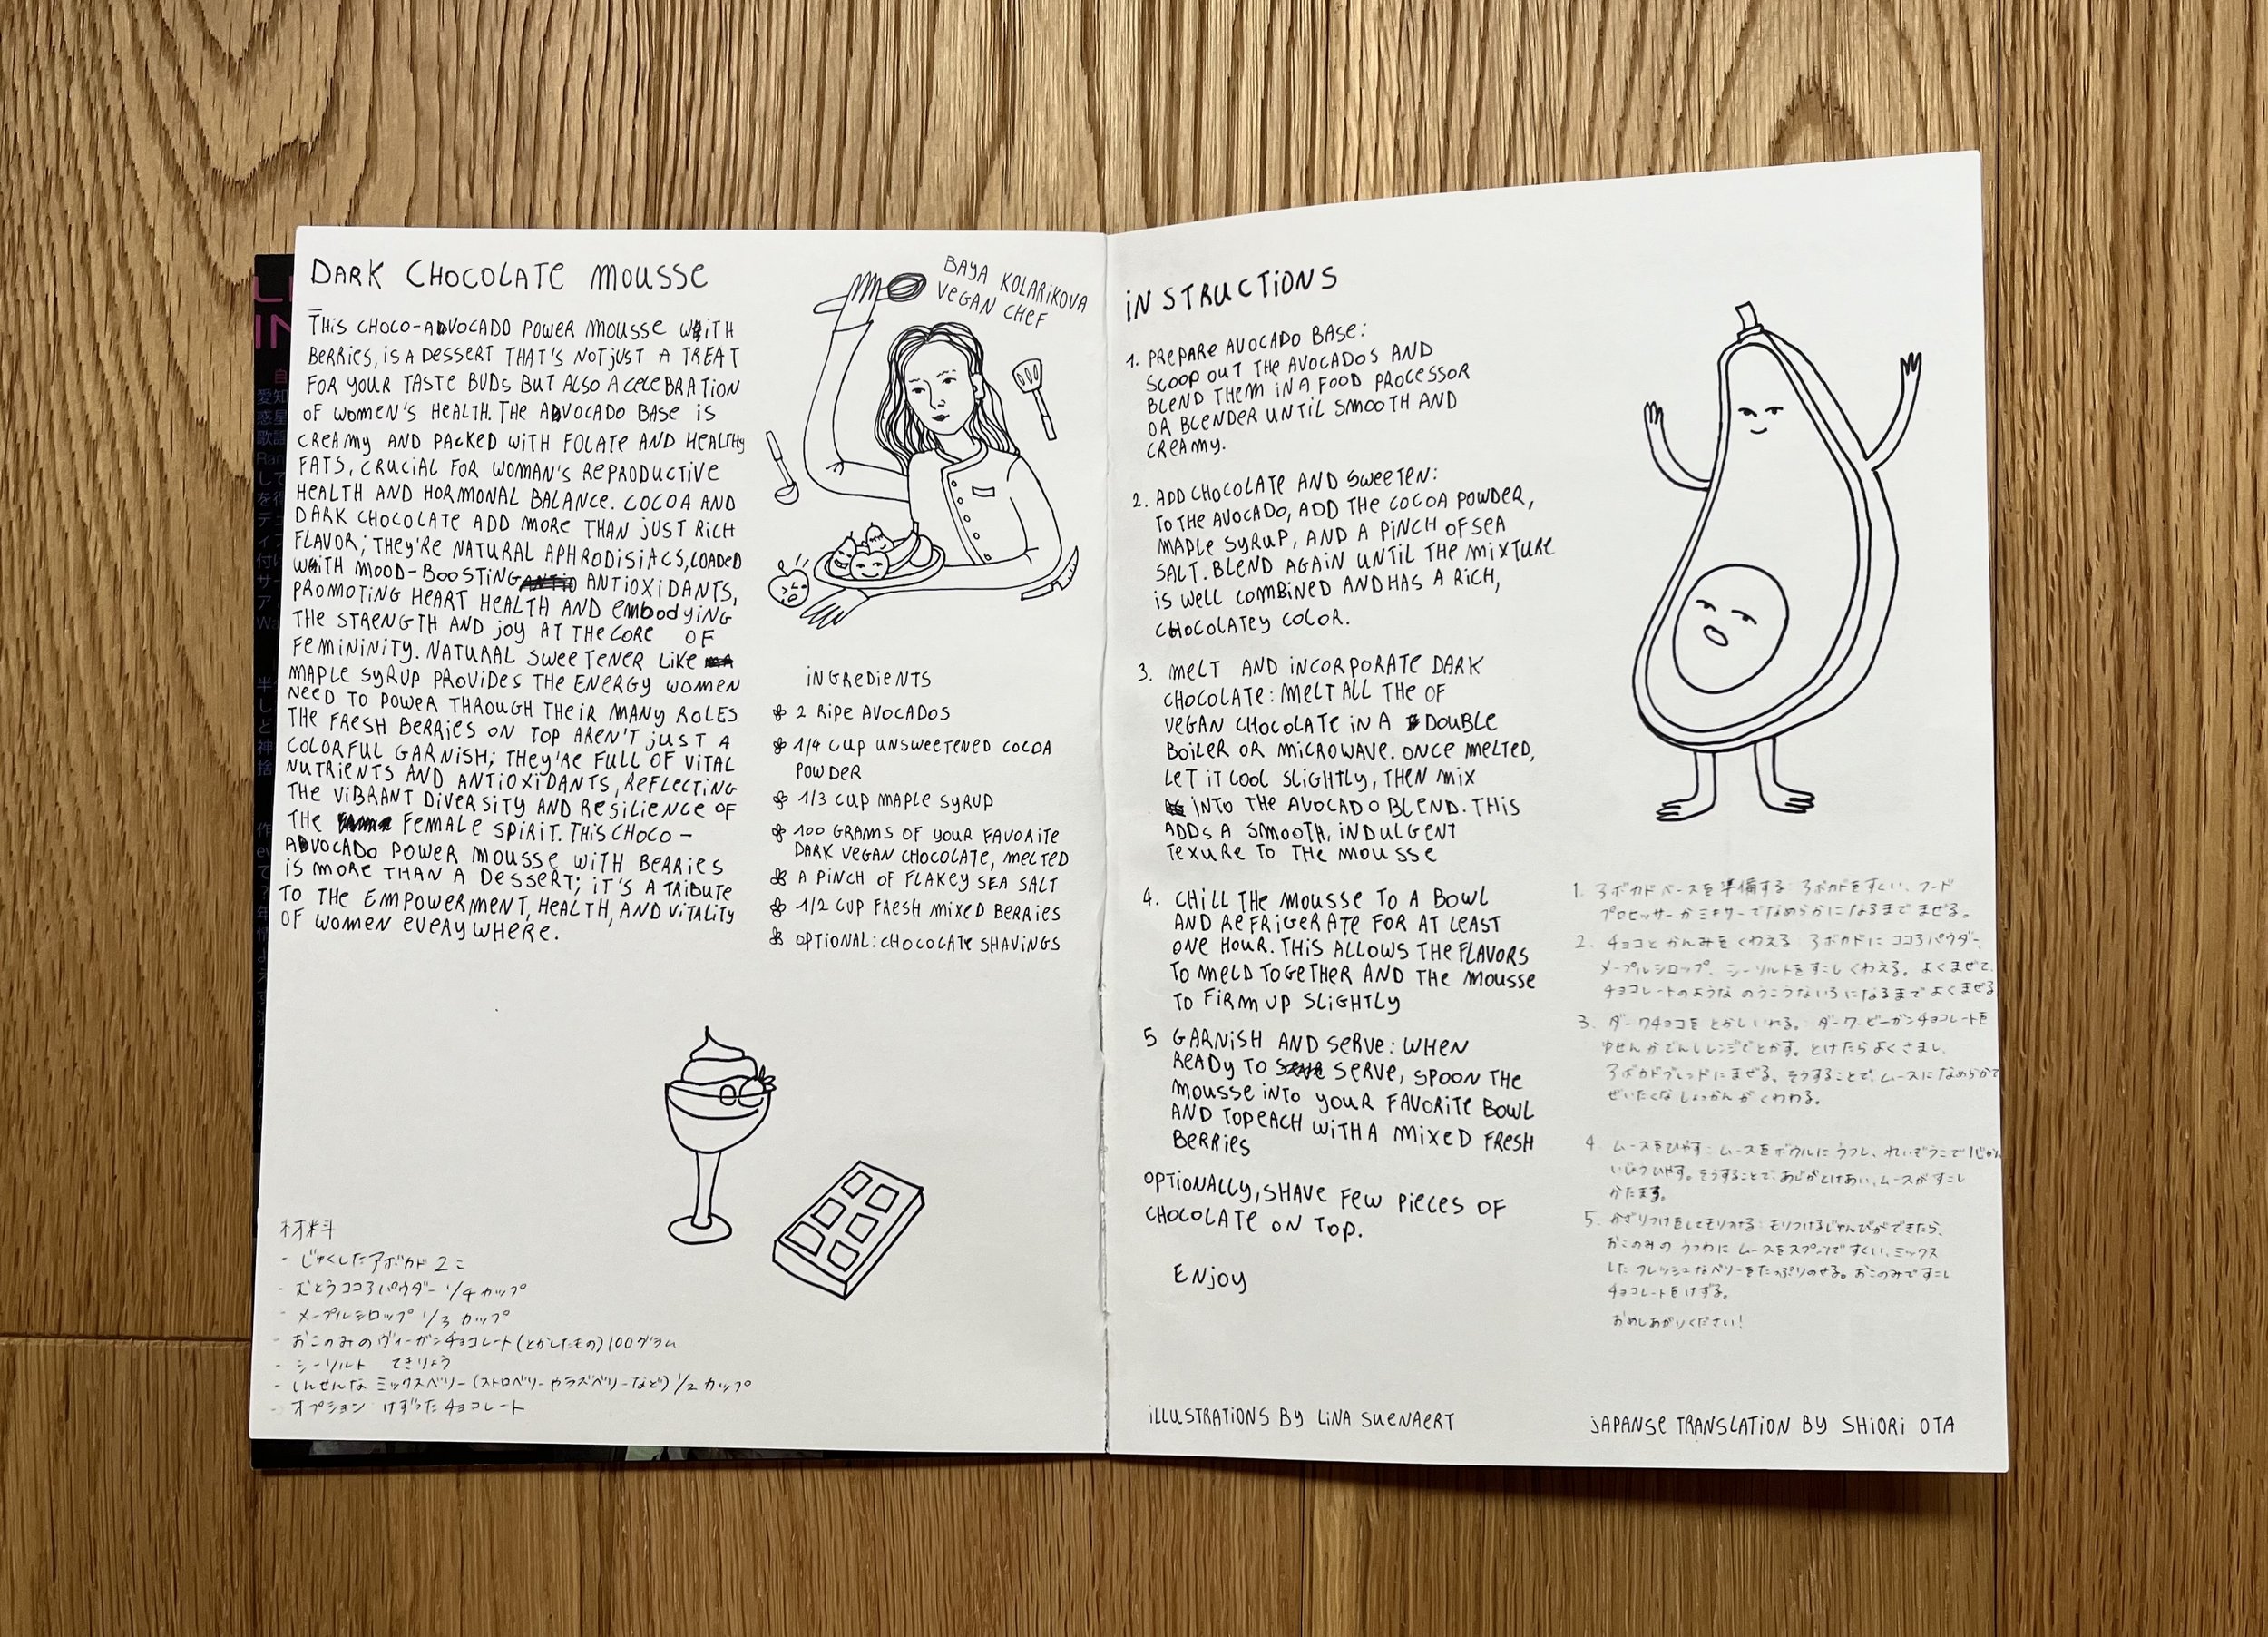 DARK CHOCOLATE MOUSSE
THIS CHOCO-ADVOCADO POWER MOUSSE WITH
BERRIES, IS A DESSERT THAT'S NOT JUST A TREAT
FOR YOUR TASTE BUDS BUT ALSO A CELEBRATION
OF WOMEN'S HEALTH. THE ADVOCADO BASE IS
CREAMY AND PACKED WITH FOLATE AND HEALTHY
FATS, CRUCIAL FOR WOMAN'S REPRODUCTIVE
HEALTH AND HORMONAL BALANCE. COCOA AND
DARK CHOCOLATE ADD MORE THAN JUST RICH
FLAVOR; THEY'RE NATURAL APHRODISIACS, LOADED
WITH MOOD-BOOSTING ANTIOXIDANTS,
PROMOTING HEART HEALTH AND EMBODYING
THE STRENGTH AND JOY AT THE CORE OF
FEMININITY. NATURAL SWEETENER LIKE
MAPLE SYRUP PROVIDES THE ENERGY WOMEN
NEED TO POWER THROUGH THEIR MANY ROLES
THE FRESH BERRIES ON TOP AREN'T JUST A
COLORFUL GARNISH; THEY'RE FULL OF VITAL
NUTRIENTS AND ANTIOXIDANTS, REFLECTING
THE VIBRANT DIVERSITY AND RESILIENCE OF
THE FEMALE SPIRIT. THIS CHOCO-
ADVOCADO POWER MOUSSE WITH BERRIES
IS MORE THAN A DESSERT; IT'S A TRIBUTE
TO THE EMPOWERMENT, HEALTH, AND VITALITY
OF WOMEN EVERYWHERE.
BAYA KOLARIKOVA
VEGAN CHEF
INGREDIENTS
2 RIPE AVOCADOS
1/4 CUP UNSWEETENED COCOA
POWDER
1/3 CUP MAPLE SYRUP
100 GRAMS OF YOUR FAVORITE
DARK VEGAN CHOCOLATE, MELTED
A PINCH OF FLAKEY SEA SALT
1/2 CUP FRESH MIXED BERRIES
OPTIONAL: CHOCOLATE SHAVINGS
材料
- じゅくしたアボカド 2こ
- むとうココアパウダー 1/4 カップ
- メープルシロップ 1/3 カップ
- おこのみのヴィーガンチョコレート(とかしたもの)100グラム
- シーソルト てきりょう
- しんせんな ミックスベリー(ストロベリーやラズベリーなど) 1/2 カップ
- オプション けずったチョコレート
INSTRUCTIONS
1. PREPARE AVOCADO BASE:
SCOOP OUT THE AVOCADOS AND
BLEND THEM IN A FOOD PROCESSOR
OR BLENDER UNTIL SMOOTH AND
CREAMY.
2. ADD CHOCOLATE AND SWEETEN:
TO THE AVOCADO, ADD THE COCOA POWDER,
MAPLE SYRUP, AND A PINCH OF SEA
SALT. BLEND AGAIN UNTIL THE MIXTURE
IS WELL COMBINED AND HAS A RICH,
CHOCOLATEY COLOR.
3. MELT AND INCORPORATE DARK
CHOCOLATE: MELT ALL THE OF
VEGAN CHOCOLATE IN A DOUBLE
BOILER OR MICROWAVE. ONCE MELTED,
LET IT COOL SLIGHTLY, THEN MIX
INTO THE AVOCADO BLEND. THIS
ADDS A SMOOTH, INDULGENT
TEXURE TO THE MOUSSE
4. CHILL THE MOUSSE TO A BOWL
AND REFRIGERATE FOR AT LEAST
ONE HOUR. THIS ALLOWS THE FLAVORS
TO MELD TOGETHER AND THE MOUSSE
TO FIRM UP SLIGHTLY
5 GARNISH AND SERVE: WHEN
READY TO SERVE, SPOON THE
MOUSSE INTO YOUR FAVORITE BOWL
AND TOP EACH WITH A MIXED FRESH
BERRIES
OPTIONALLY, SHAVE FEW PIECES OF
CHOCOLATE ON TOP.
ENJOY
1. アボカドベースを準備する: アボカドをすくい、フード
プロセッサーかミキサーでなめらかになるまでまぜる。
2. チョコとかんみをくわえる: アボカドにココアパウダー、
メープルシロップ、シーソルトをすこしくわえる。よくまぜて、
チョコレートのような のうこうないろになるまでよくまぜる
3. ダークチョコをとかしいれる。ダークビーガンチョコレートを
ゆせんかでんしレンジでとかす。とけたらよくさまし、
アボカドブレンドにまぜる。そうすることで、ムースになめらかで
ぜいたくなしょっかんがくわわる。
4. ムースをひやす: ムースをボウルにうつし、れいぞうこで1じかん
いじょうひやす。そうすることで、あじがとけあい、ムースがすこし
かたまる。
5. かざりつけをしてもりつける: もりつけるじゅんびができたら、
おこのみの うつわに ムースをスプーンですくい、ミックス
した フレッシュなベリーをたっぷりのせる。おこのみですこし
チョコレートをけずる。
おめしあがりください!
ILLUSTRATIONS BY LINA SUENAERT
JAPANSE TRANSLATION BY SHIORI OTA